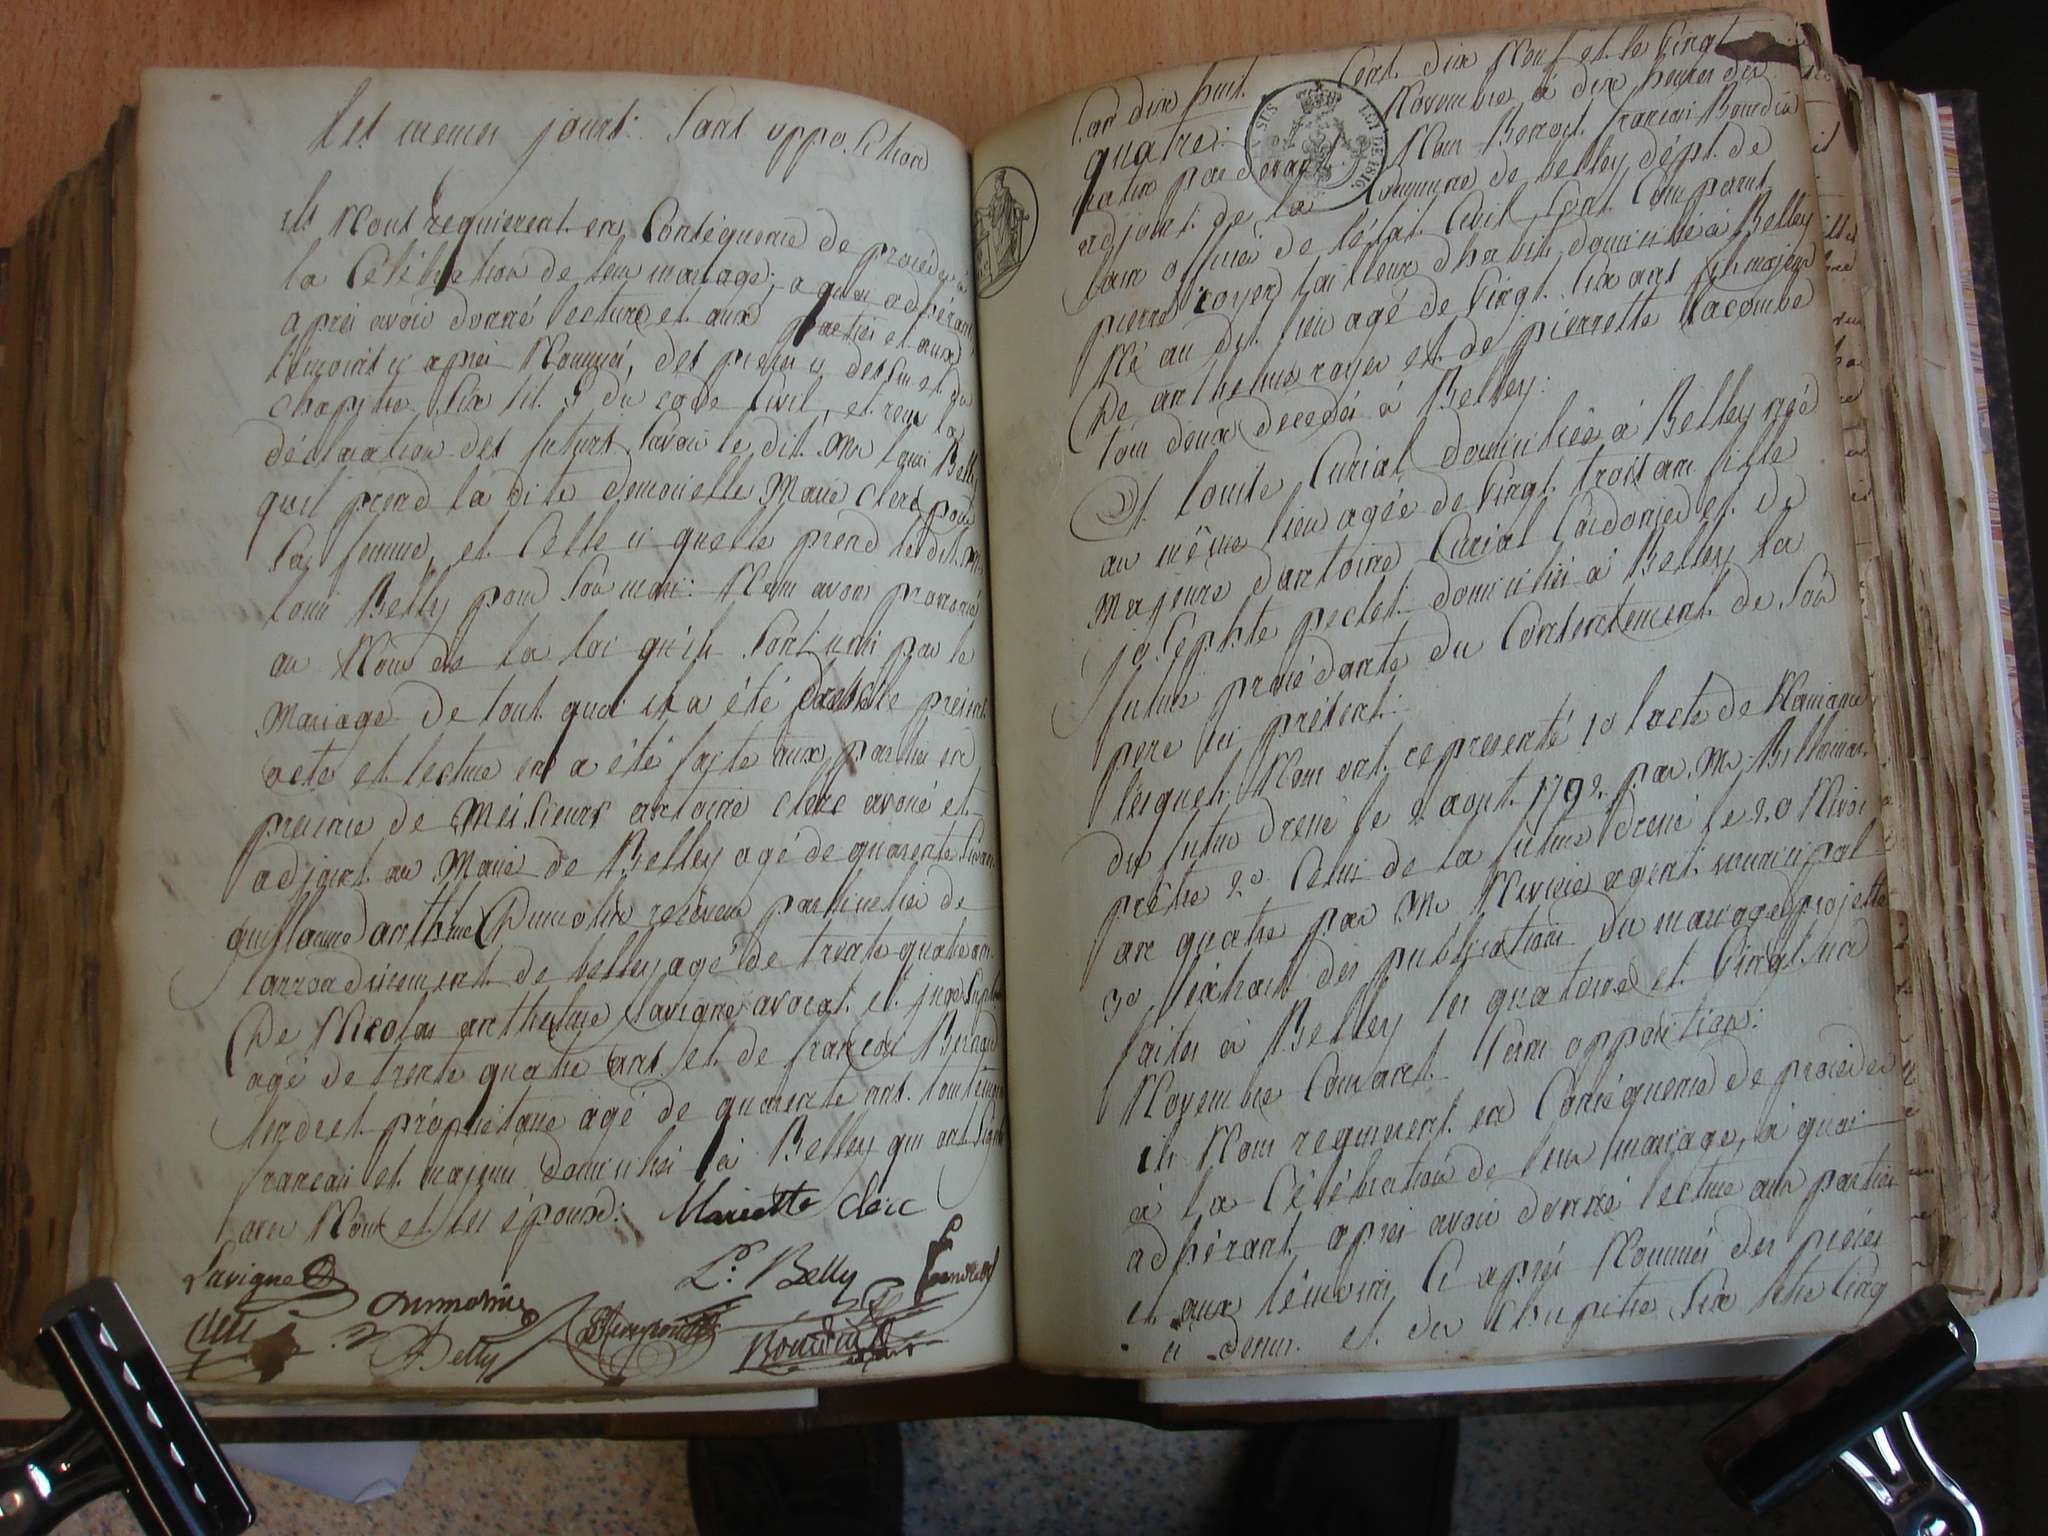 les memes jours: Sans opposition
ils Nous requierent en Conséquence de procéder à
la Célébration de leur mariage; a quoi adhérant
apres avoir donné lecture et aux parties et aux
témoins cy après Nommés, des pieces cy dessus et du
chapitre six tit. 5 du code Civil, et reçu la
déclaration des futurs, savoir le dit Mr Louis Belly
quil prend la dite demoiselle Marie Clerc pour
Sa femme, et Celle ci quelle prend le dit Mr
Louis Belly pour Son mari: Nous avons prononcé
au Nom de la loi qu'ils Sont unis par le
Mariage de tout quoi il a été dressé le présent
acte et lecture en a été faite aux parties en
presence de Messieurs antoine clerc avoué et
adjoint au Maire de Belley agé de quarente
guillaume anthelme Dumolin receveur particulier de
larrondissement de belley agé de trente quatre ans
De Nicolas anthelme Lavigne avocat et juge Supléant
agé de trente quatre ans et de françois Bernard
Tendret propriétaire agé de quarente ans tous témoins
francais et majeurs domiciliés à Belley qui ont signé
avec Nous et les époux: Mariette Clerc
Lavigne L.s Belly Tendret
Clerc Dumolin
Belly Bourdin
adjoint
L'an dix huit Cent dix Neuf et le Vingt
quatre Novembre à dix heures du
matin par devant Nous Benoit françois Bourdin
adjoint de la Commune de belley dépt. de
lain officier de l'état Civil Sont Comparus
pierre royer tailleur dhabits domicilié à Belley
Né au dit lieu agé de Vingt Six ans fils majeur
De anthelme royer et de pierrette Lacombe
tous deux decedés à Belley:
Et Louise Curial domiciliée à Belley née
au même lieu agée de Vingt trois ans fille
Majeure dantoine Curial Cordonier et de
josephte peclet domiciliés à Belley la
future procédante du Consentement de Son
pere ici présent:
lesquels Nous ont representé 1º lacte de Naissance
du futur dressé le 2 aout 1792 par Mr
prêtre 2º Celui de la future dressé le 20 Nivose
an quatre par Mr agent municipal
3º lextrait des publications du mariage projetté
faites à Belley les quatorze et Vingt un
Novembre Courant Sans opposition:
ils Nous requierent en Conséquence de procéder
à la Célébration de leur mariage, à quoi
adhérant, après avoir donné lecture aux parties
et aux témoins Ci après Nommés des pièces
ci dessus et du Chapitre Six titre Cinq
LOI DE 1816